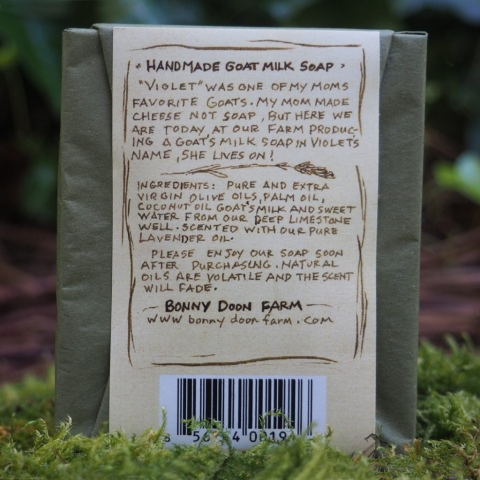 • HANDMADE GOAT MILK SOAP •
"VIOLET" WAS ONE OF MY MOMS
FAVORITE GOATS. MY MOM MADE
CHEESE NOT SOAP, BUT HERE WE
ARE TODAY, AT OUR FARM PRODUC-
ING A GOAT'S MILK SOAP IN VIOLET'S
NAME, SHE LIVES ON!
INGREDIENTS: PURE AND EXTRA
VIRGIN OLIVE OILS, PALM OIL,
COCONUT OIL GOAT'S MILK AND SWEET
WATER FROM OUR DEEP LIMESTONE
WELL. SCENTED WITH OUR PURE
LAVENDER OIL.
PLEASE ENJOY OUR SOAP SOON
AFTER PURCHASING. NATURAL
OILS ARE VOLATILE AND THE SCENT
WILL FADE.
— BONNY DOON FARM —
www bonny doon farm . com